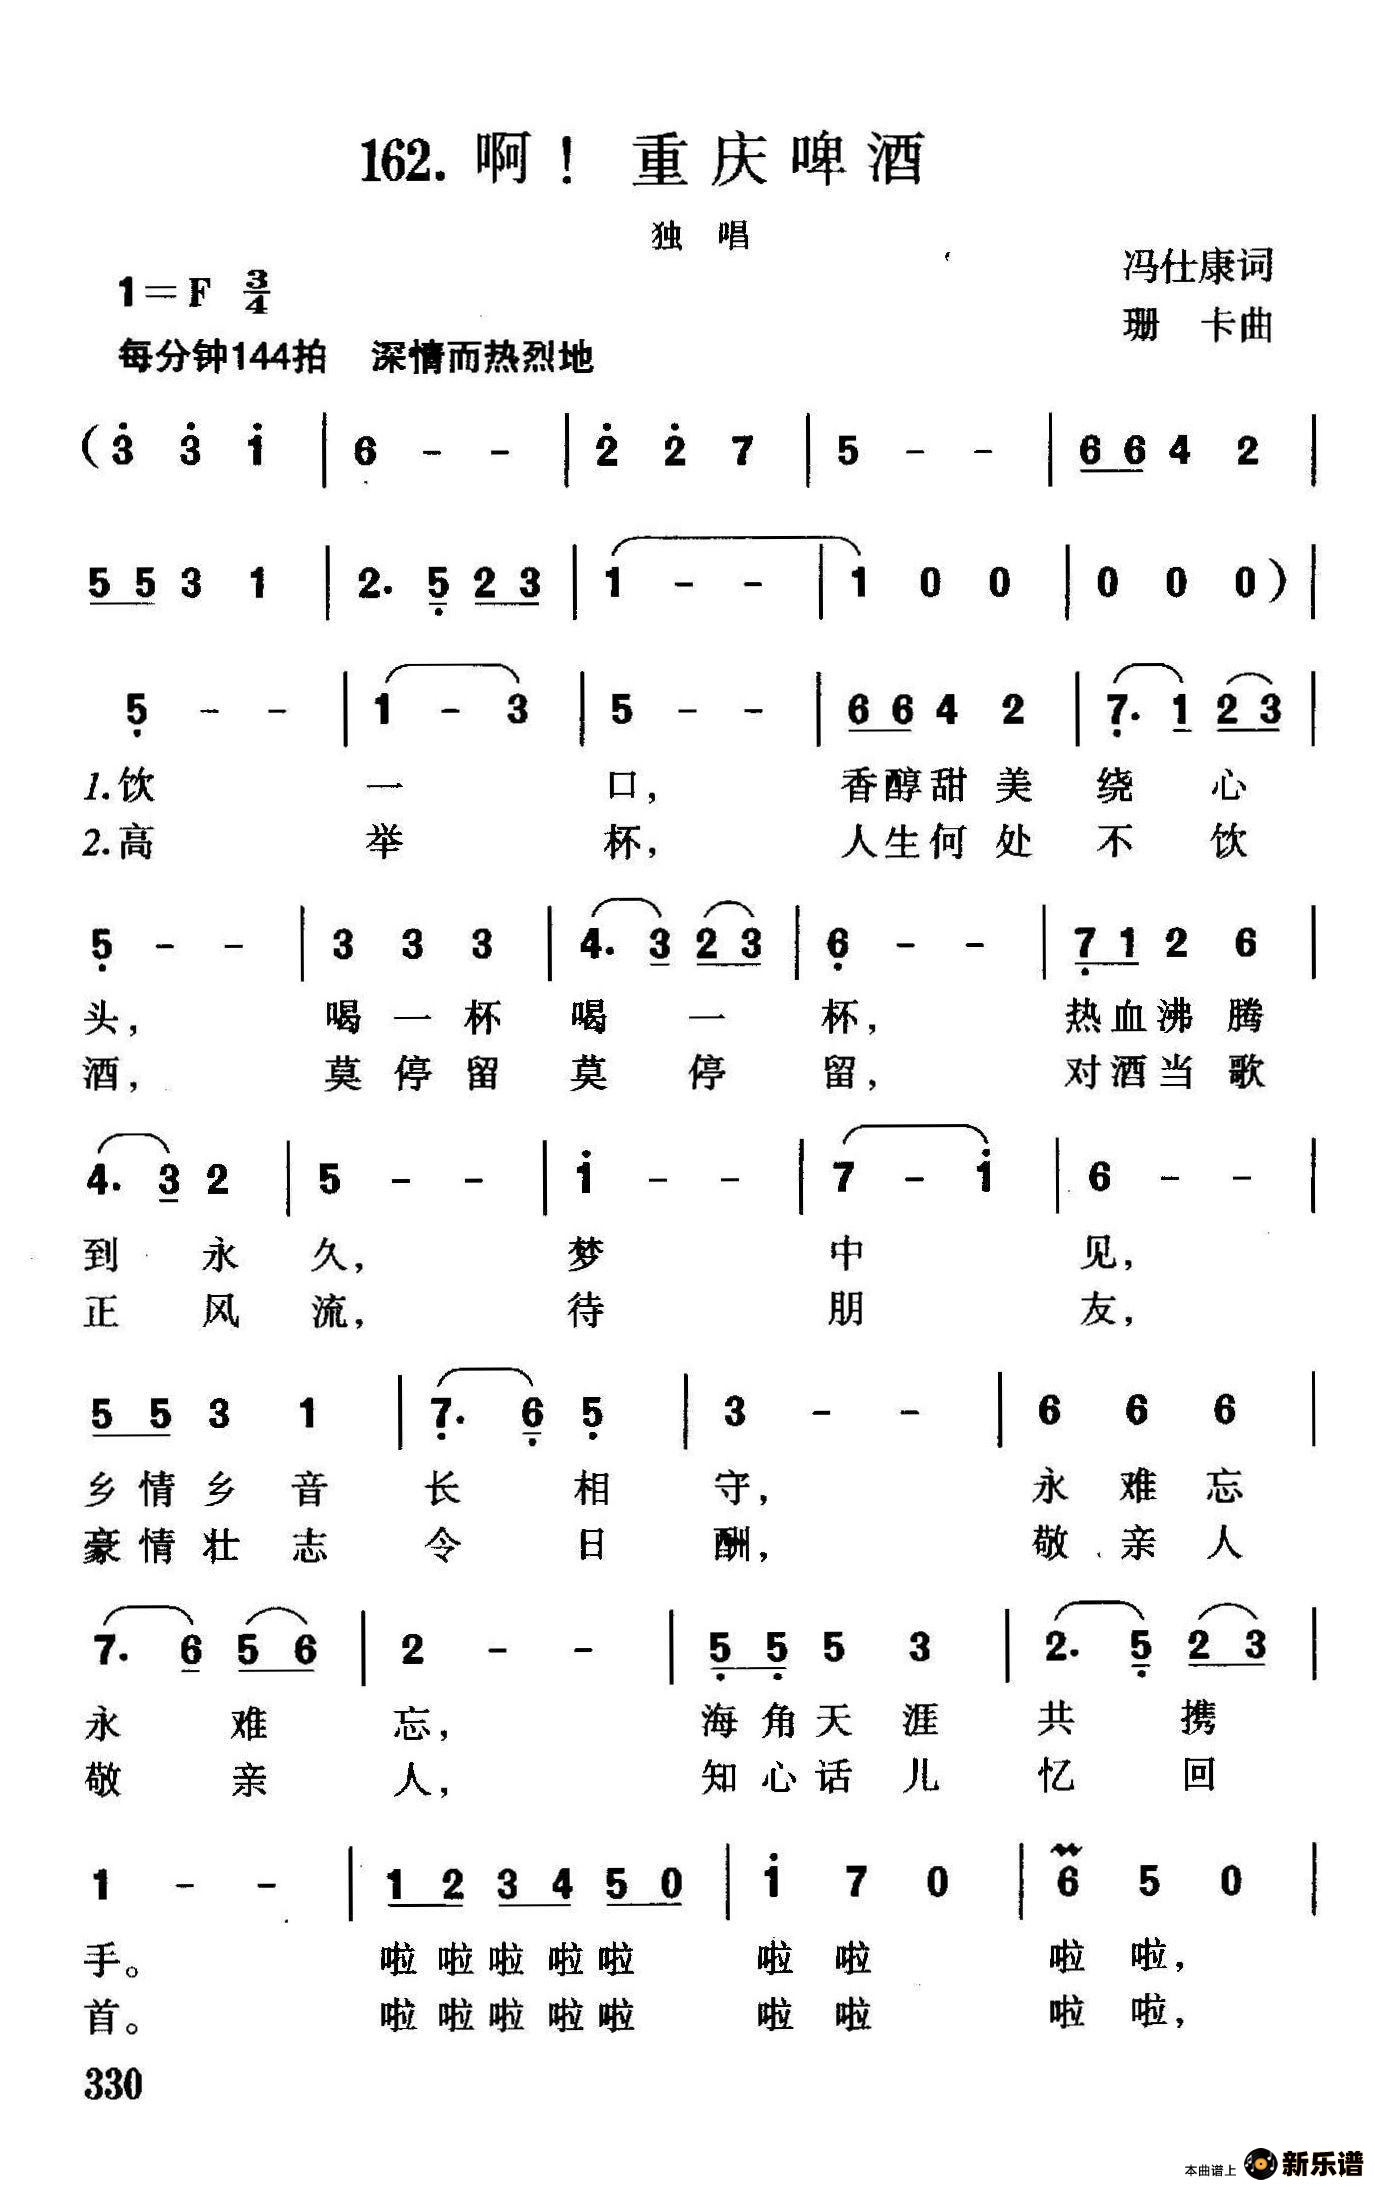 162. 啊！ 重庆啤酒
独 唱
冯仕康词
1=F 3/4
珊 卡曲
每分钟144拍 深情而热烈地
( 3 3 1 | 6 - - | 2 2 7 | 5 - - | 6 6 4 2 |
5 5 3 1 | 2. 5 2 3 | 1 - - | 1 0 0 | 0 0 0 ) |
5 - - | 1 - 3 | 5 - - | 6 6 4 2 | 7. 1 2 3 |
1.饮 一 口， 香醇甜美 绕 心
2.高 举 杯， 人生何处 不 饮
5 - - | 3 3 3 | 4. 3 2 3 | 6 - - | 7 1 2 6 |
头， 喝一杯 喝 一 杯， 热血沸腾
酒， 莫停留 莫 停 留， 对酒当歌
4. 3 2 | 5 - - | 1 - - | 7 - 1 | 6 - - |
到 永 久， 梦 中 见，
正 风 流， 待 朋 友，
5 5 3 1 | 7. 6 5 | 3 - - | 6 6 6 |
乡情乡音 长 相 守， 永难忘
豪情壮志 令 日 酬， 敬亲人
7. 6 5 6 | 2 - - | 5 5 5 3 | 2. 5 2 3 |
永 难 忘， 海角天涯 共 携
敬 亲 人， 知心话儿 忆 回
1 - - | 1 2 3 4 5 0 | 1 7 0 | 6 5 0 |
手。 啦啦啦啦啦 啦啦 啦啦，
首。 啦啦啦啦啦 啦啦 啦啦，
330
本曲谱上 新乐谱